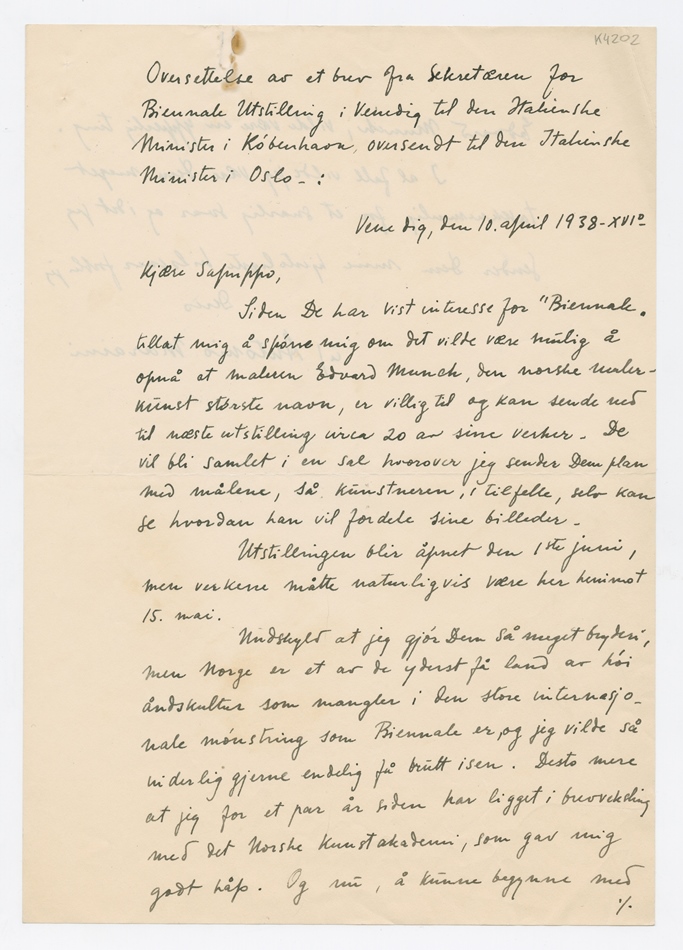 K4202
Oversettelse av et brev fra Sekretæren for
Biennale Utstilling i Venedig til den Italienske
Minister i København, oversendt til den Italienske
Minister i Oslo -:
Venedig, den 10. april 1938-XVIº
Kjære Sapuppo,
Siden De har vist interesse for "Biennale.
tillat mig å spørre mig om det vilde være mulig å
opnå at maleren Edvard Munch, den norske maler-
kunst største navn, er villig til og kan sende ned
til næste utstilling circa 20 av sine verker. De
vil bli samlet i en sal hvorover jeg sender Dem plan
med målene, så kunstneren, i tilfelle, selv kan
se hvordan han vil fordele sine billeder.
Utstillingen blir åpnet den 1ste juni,
men verkene måtte naturligvis være her henimot
15. mai.
Undskyld at jeg gjör Dem så meget bryderi,
men Norge er et av de yderst få land av höi
åndskultur som mangler i den store internasjo-
nale mönstring som Biennale er, og jeg vilde så
inderlig gjerne endelig få brutt isen. Desto mere
at jeg for et par år siden har ligget i brevveksling
med det Norske Kunstakademi, som gav mig
godt håp. Og nu, å kunne begynne med
./.